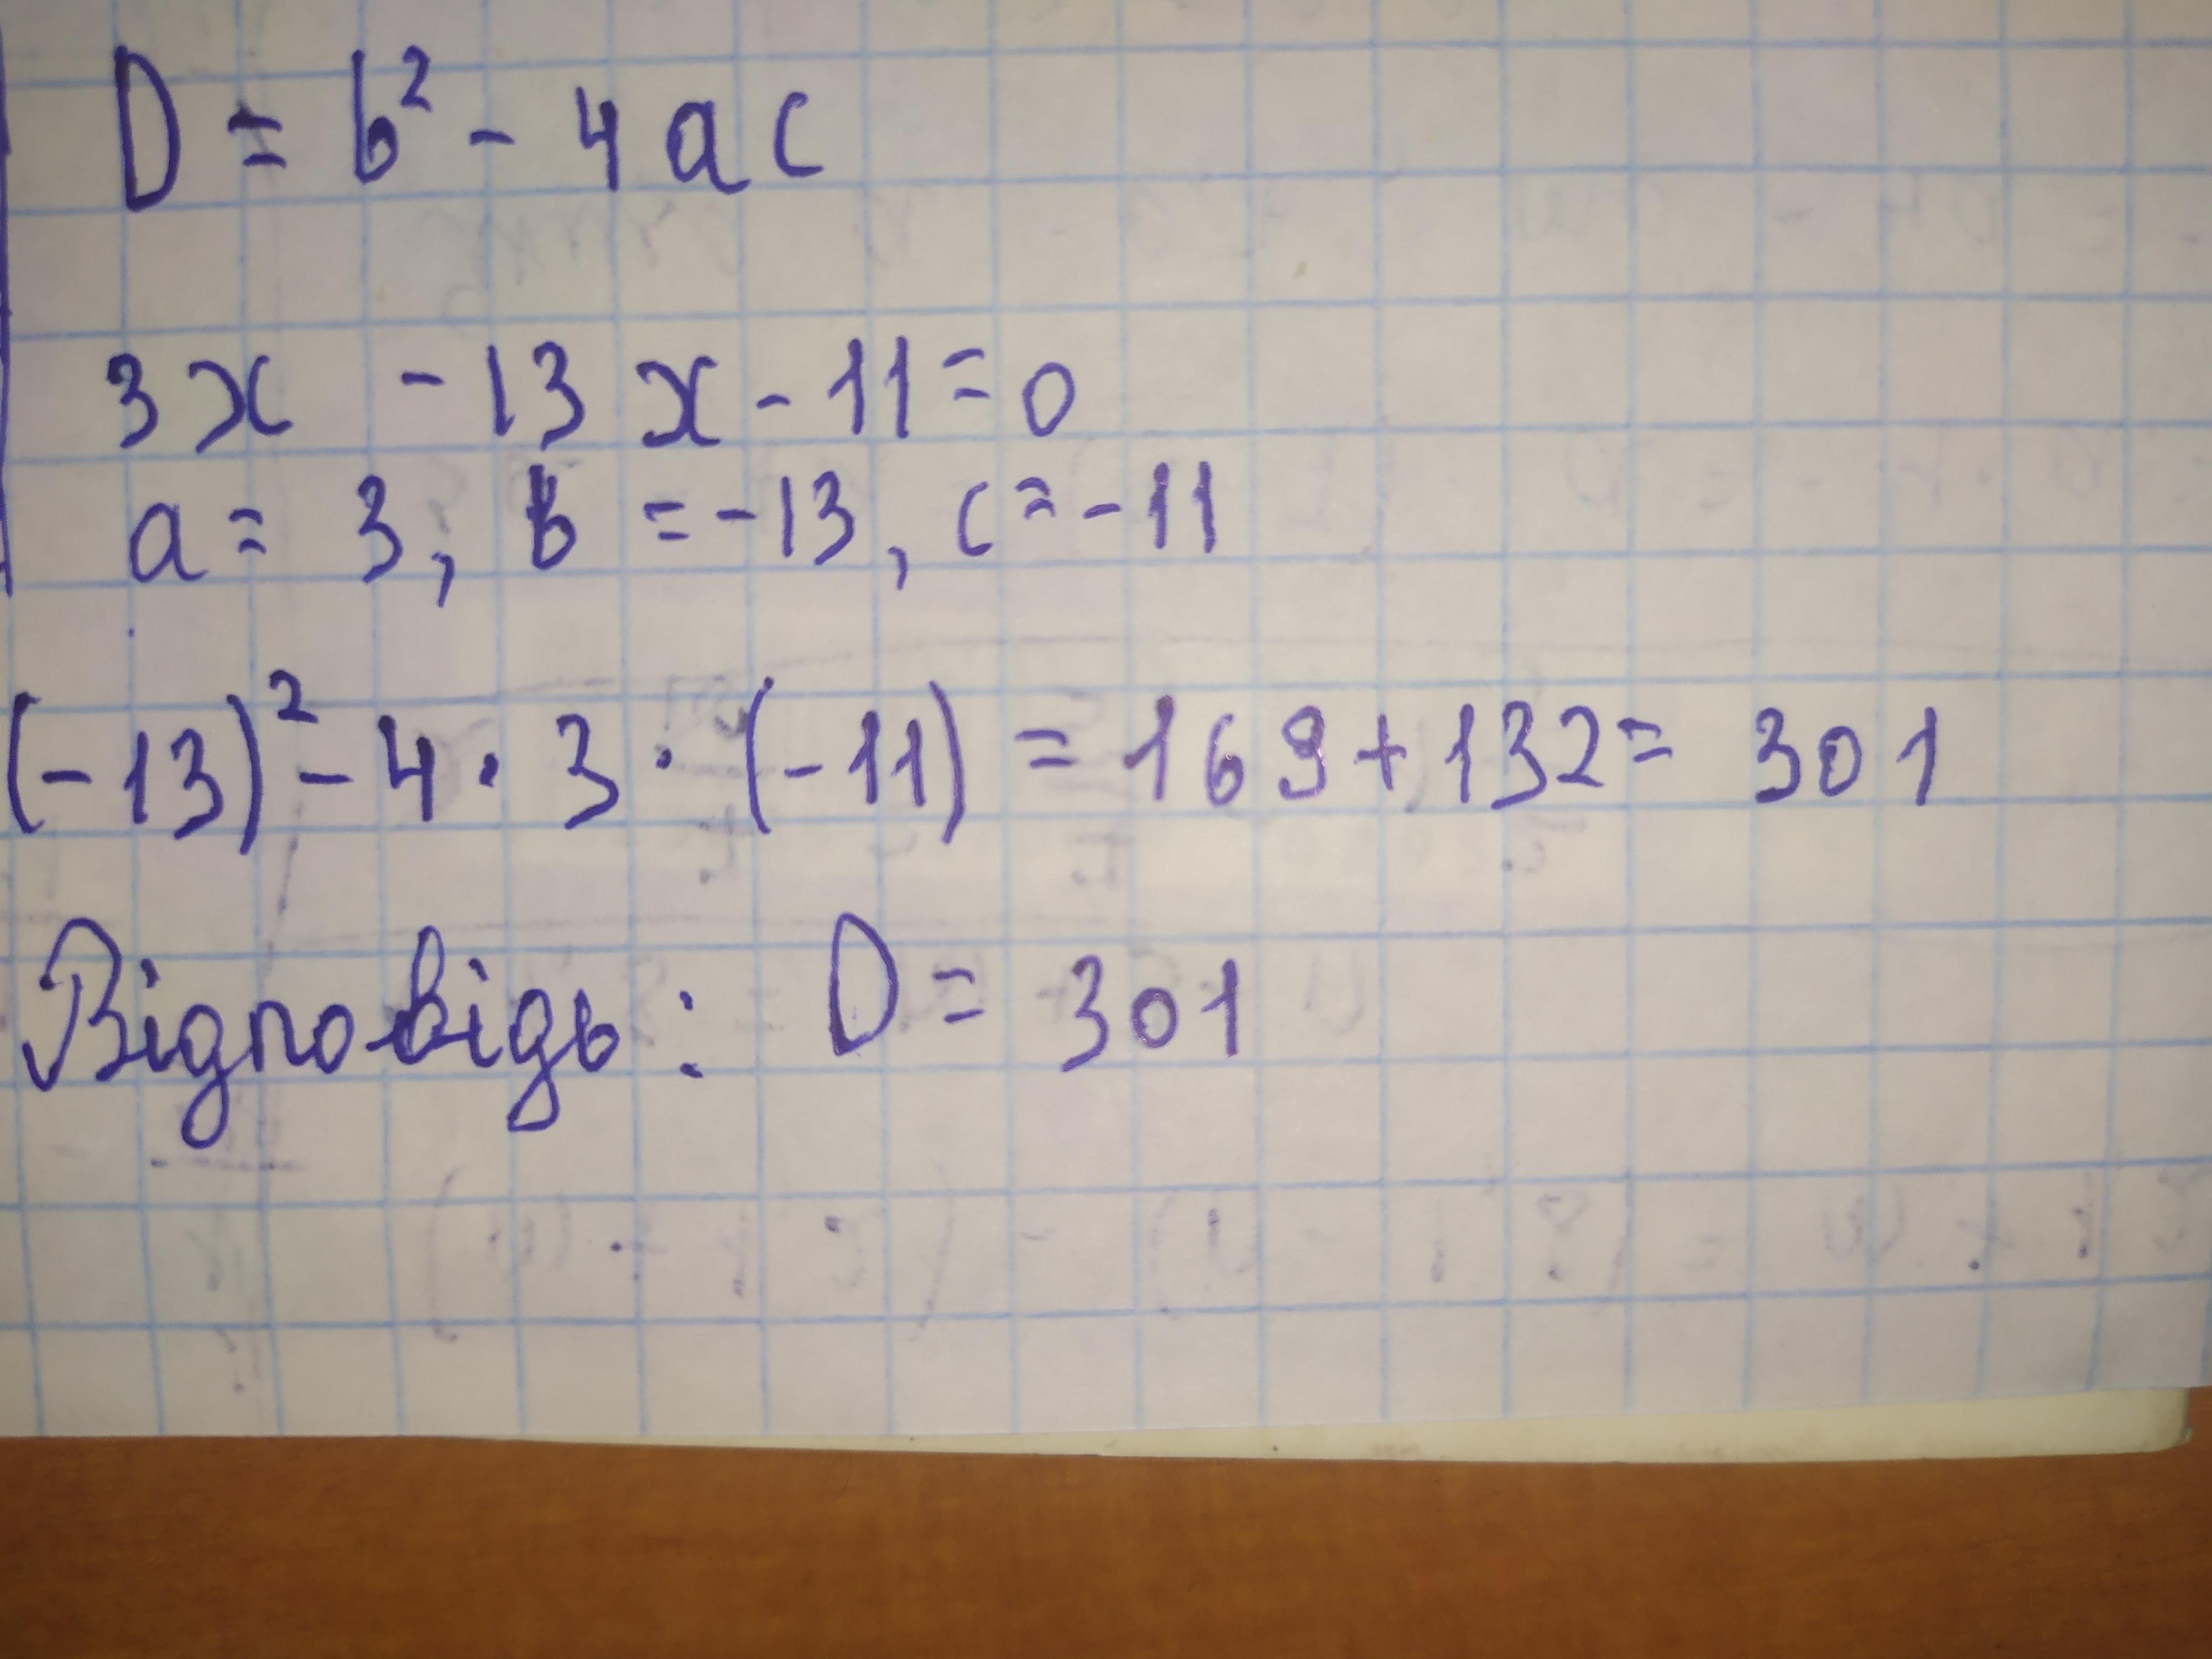 D = b² - 4ac
3x - 13x - 11 = 0
a = 3, b = -13, c = -11
(-13)² - 4 · 3 · (-11) = 169 + 132 = 301
Відповідь: D = 301